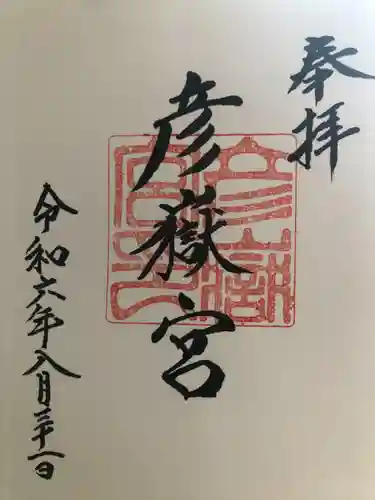 奉拝
彦嶽宮
令和六年八月三十一日